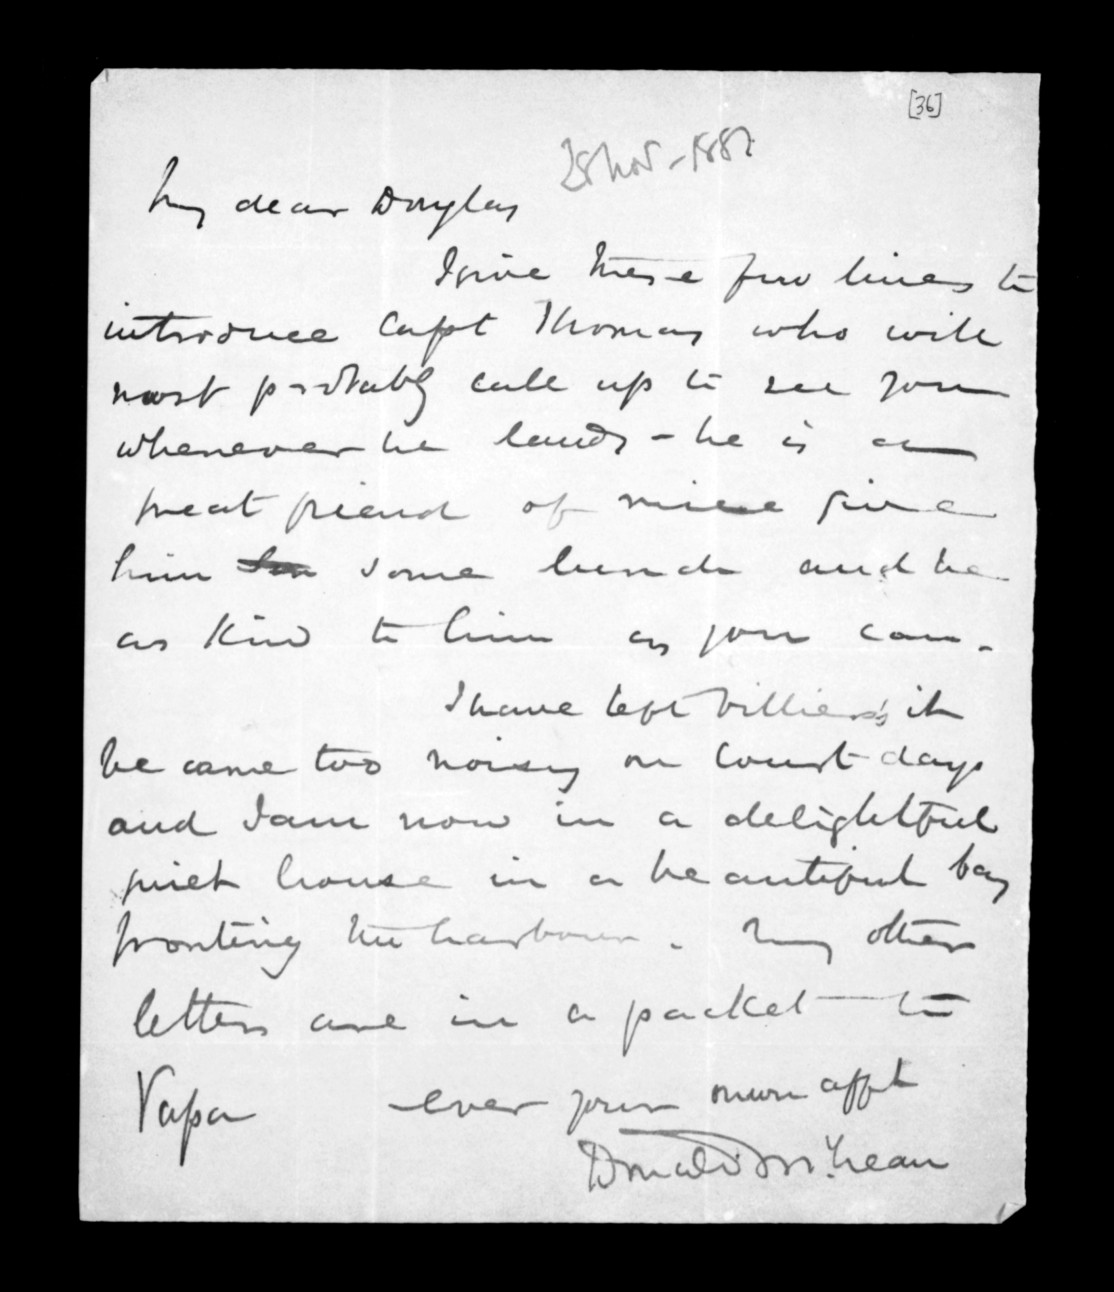 [36]
28 Nov - 1882
My dear Douglas
I give these few lines to
introduce Capt Thomas who will
most probably call up to see you
whenever he lands - he is a
great friend of mine give
him some lunch and be
as kind to him as you can.
I have left Villiers's it
became too noisy on Court days
and I am now in a delightful
quiet house in a beautiful bay
fronting the harbour. My other
letters are in a packet to
Papa ever your own afft
Donald McLean